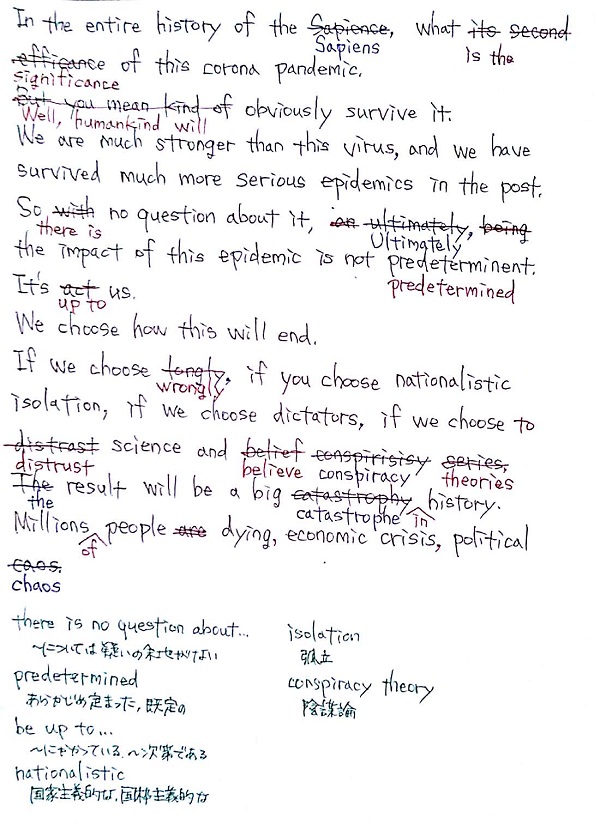 In the entire history of the Sapience, what its second
Sapiens is the
efficance of this corona pandemic.
significance
But you mean kind of obviously survive it.
Well, humankind will
We are much stronger than this virus, and we have
survived much more serious epidemics in the post.
So with no question about it, an ultimately, being
there is Ultimately
the impact of this epidemic is not predeterminent.
predetermined
It's act us.
up to
We choose how this will end.
If we choose tongly, if you choose nationalistic
wrongly
isolation, if we choose dictators, if we choose to
distrast science and belief conspirisisy series,
distrust believe conspiracy theories
The result will be a big catastrophy history.
the catastrophe in
Millions people are dying, economic crisis, political
of
caos.
chaos
there is no question about...
〜については疑いの余地がない
predetermined
あらかじめ定まった, 既定の
be up to...
〜にかかっている, 〜次第である
nationalistic
国家主義的な, 国粋主義的な
isolation
孤立
conspiracy theory
陰謀論